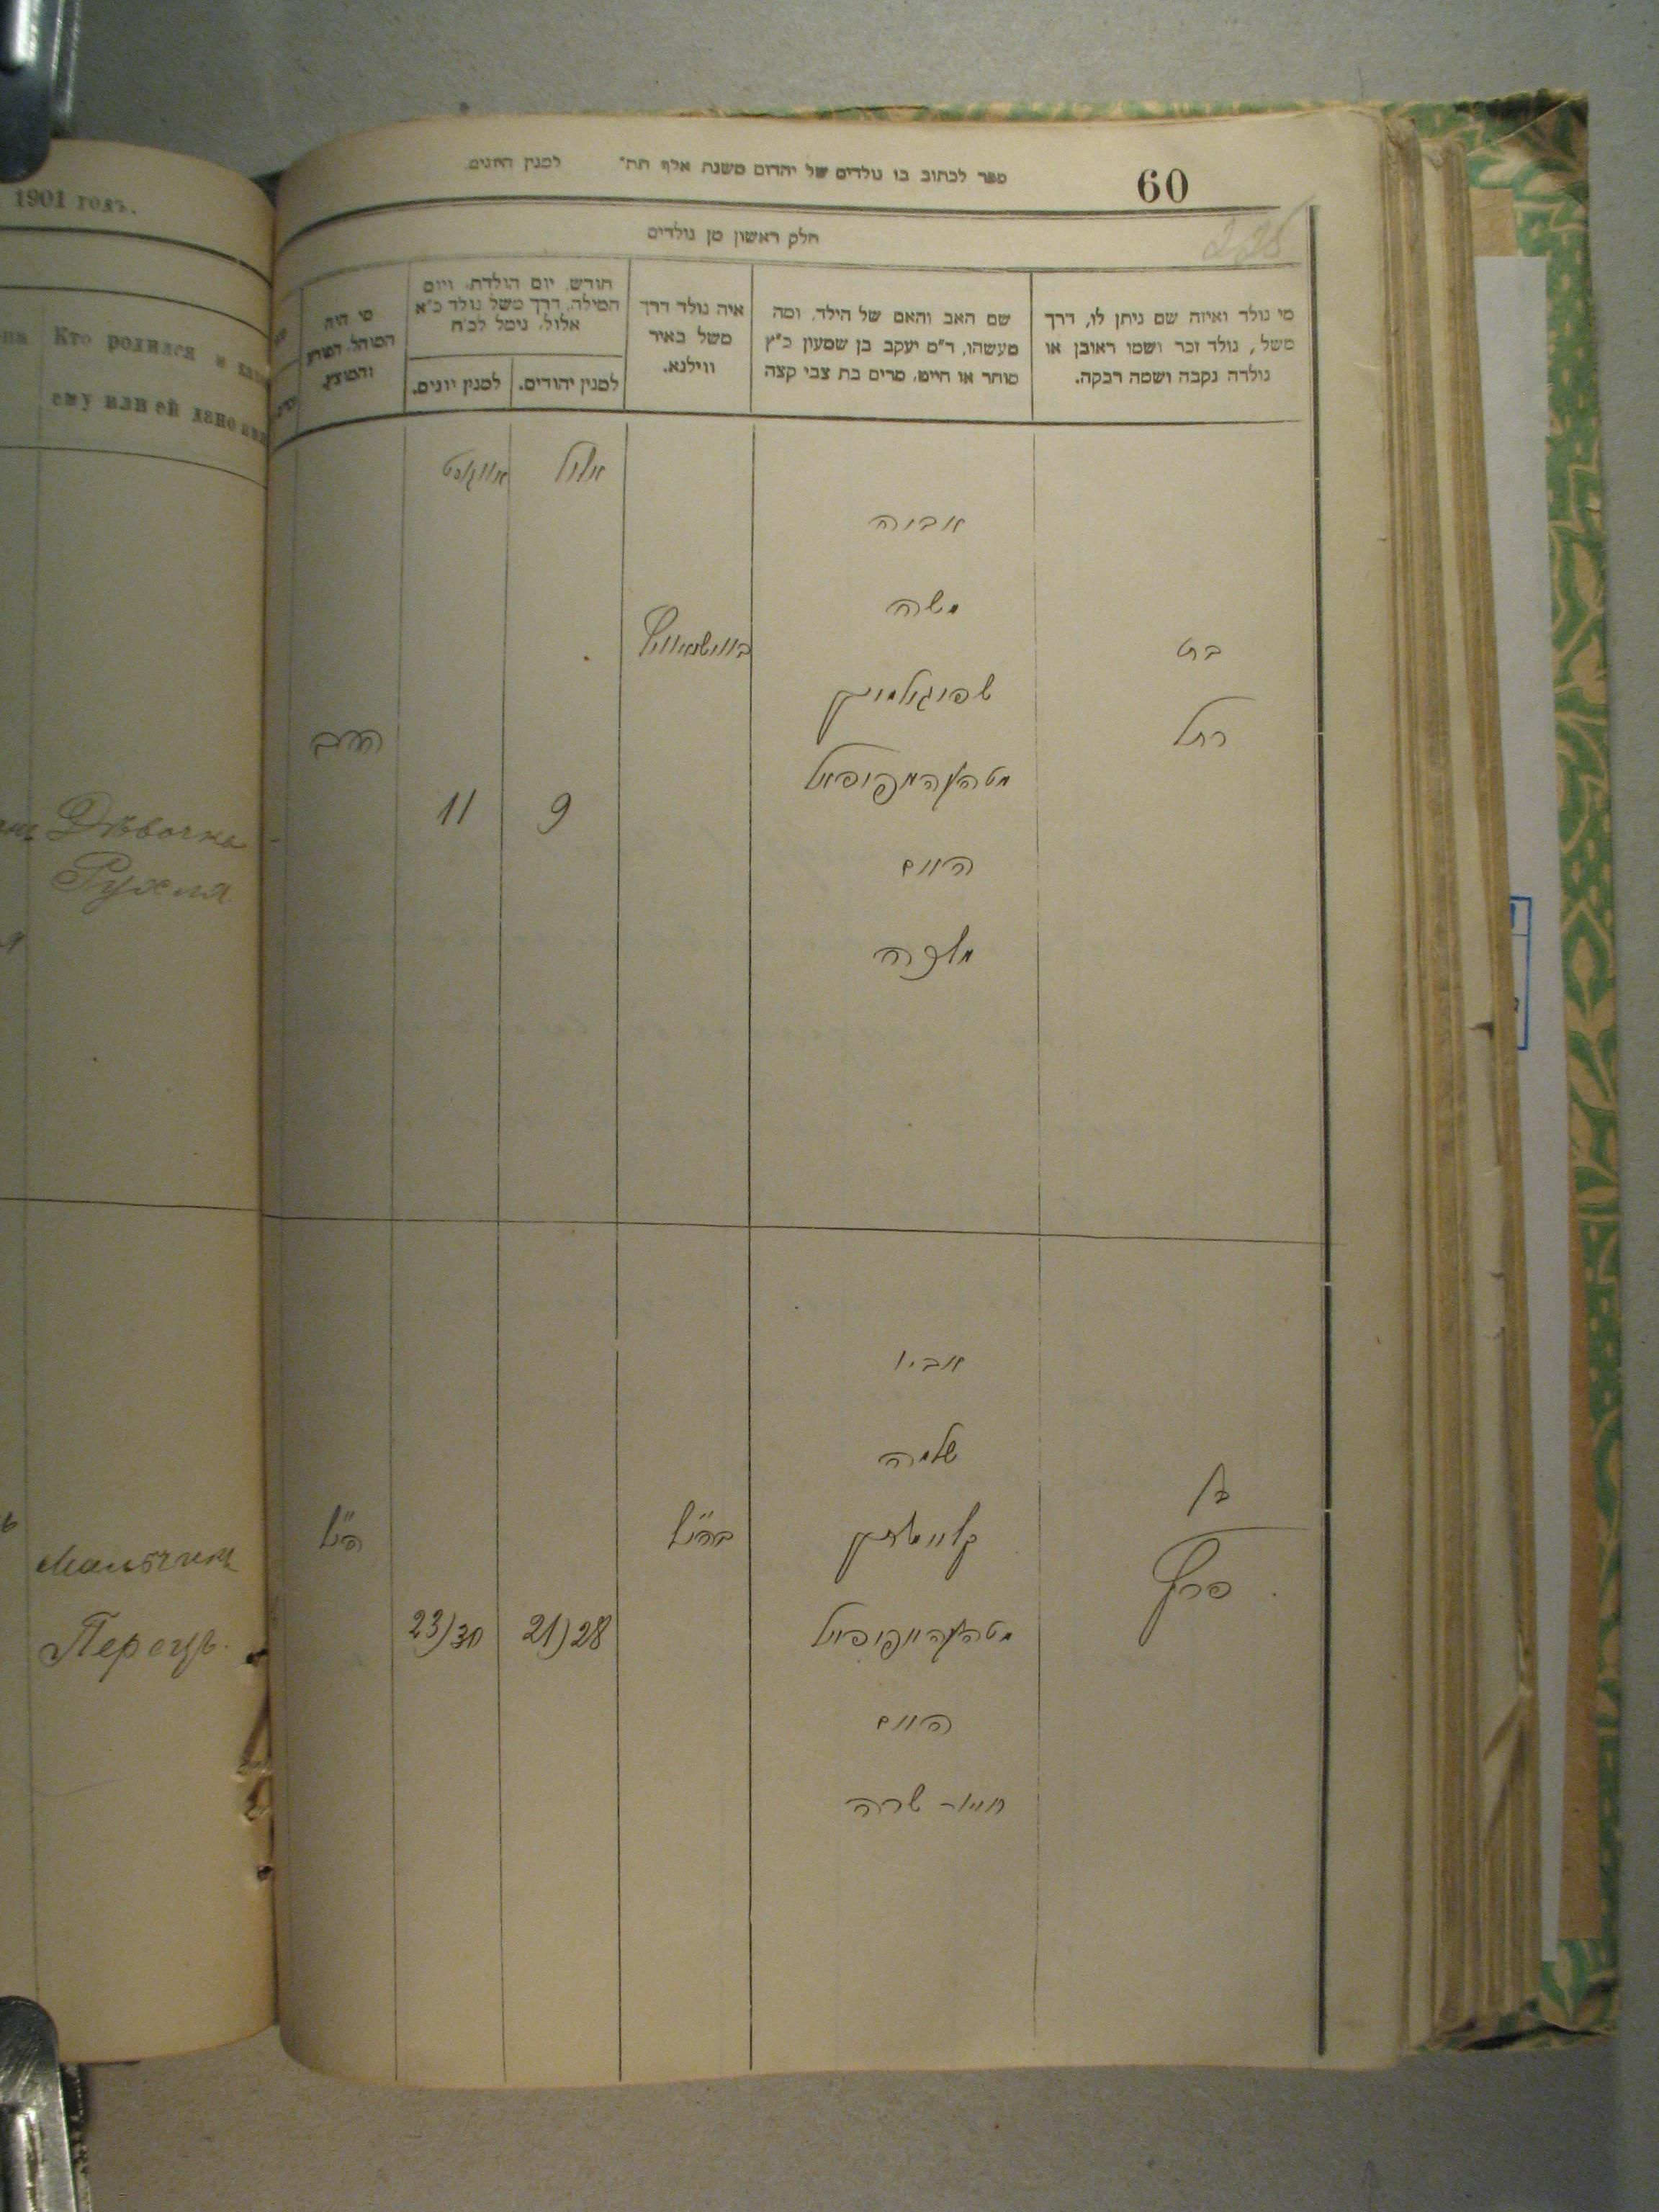 1901 годъ.
Кто родился и
ему или ей дано
Дѣвочка
Рухля
Мальчикъ
Перецъ.
60
ספר לכתוב בו נולדים של יהדום משנת אלף תת" למנין היונים.
225
חלק ראשון מן נולדים
מי נולד ואיזה שם ניתן לו, דרך
משל, נולד זכר ושמו ראובן או
נולדה נקבה ושמה רבקה.
שם האב והאם של הילד, ומה
מעשהו, ד"מ יעקב בן שמעון כ"ץ
סוחר או חייט, מרים בת צבי קצה
איה נולד דרך
משל באיר
ווילנא.
חודש, יום הולדת, ויום
המילה, דרך משל נולד כ"א
אלול, נימל לכ"ח
למנין יהודים.
למנין יונים.
מי היה
המוהל, הפורע
והמוצץ.
אלול
אווגוסט
בת
רחל
אביה
משה
שפיגעלמאן
האם
מלכה
9
11
הרב
בן
פרץ
אביו
שלמה
האם
חיה - שרה
בהנ"ל
21)28
23)30
הנ"ל